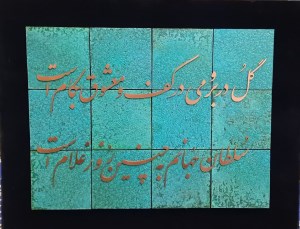 گل در بر و می در کف و معشوق بکام است
سلطان جهانم به چنین روز غلام است